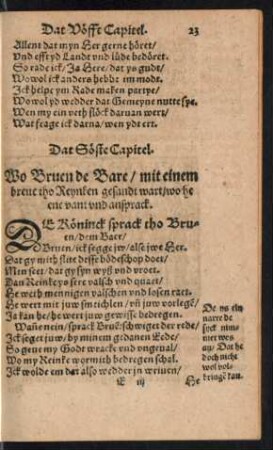 Dat Vöffte Capitel. 23
Allent dat myn Her gerne höret/
Vnd efft yd Lande vnd lüde bedöret.
So rade ick/ Ja Here/ dat ys gudt/
Wo wol ick anders hebbe im modt.
Ick helpe ym Rade maken partye/
Wo wol yd wedder dat Gemeyne nutte sye.
Wen my ein veth stück daruan wert/
Wat frage ick darna/ wen ydt ert.
Dat Söste Capitel.
Wo Bruen de Bare/ mit einem
breue tho Reynken gesandt wart/ wo he
ene vant vnd ansprack.
DE Köninck sprack tho Bru-
en/ dem Baer/
Bruen/ ick segge jw/ alse jwe Her.
Dat gy mith flite desse bödeschop doet/
Men seet/ dat gy syn wyß vnd vroet.
Dan Reinke ys sere valsch vnd quaet/
He weth mennigen valschen vnd losen raet.
He wert mit juw smeichlen/ vñ juw vorlegē/
Ja kan he/ he wert juw gewisse bedregen.
Wañe nein/ sprack Bruē/ swiget der rede/
Ick seget juw/ by minem gedanen Eede/
So geue my Godt wracke vnd vngeual/
Wo my Reinke wor mith bedregen schal.
Ick wolde em dat also wedder in wriuen/
De ys ein
narre de
syck nim-
mer wes
an/ Dat he
doch nicht
wol vol-
bringē kan.
E iij He